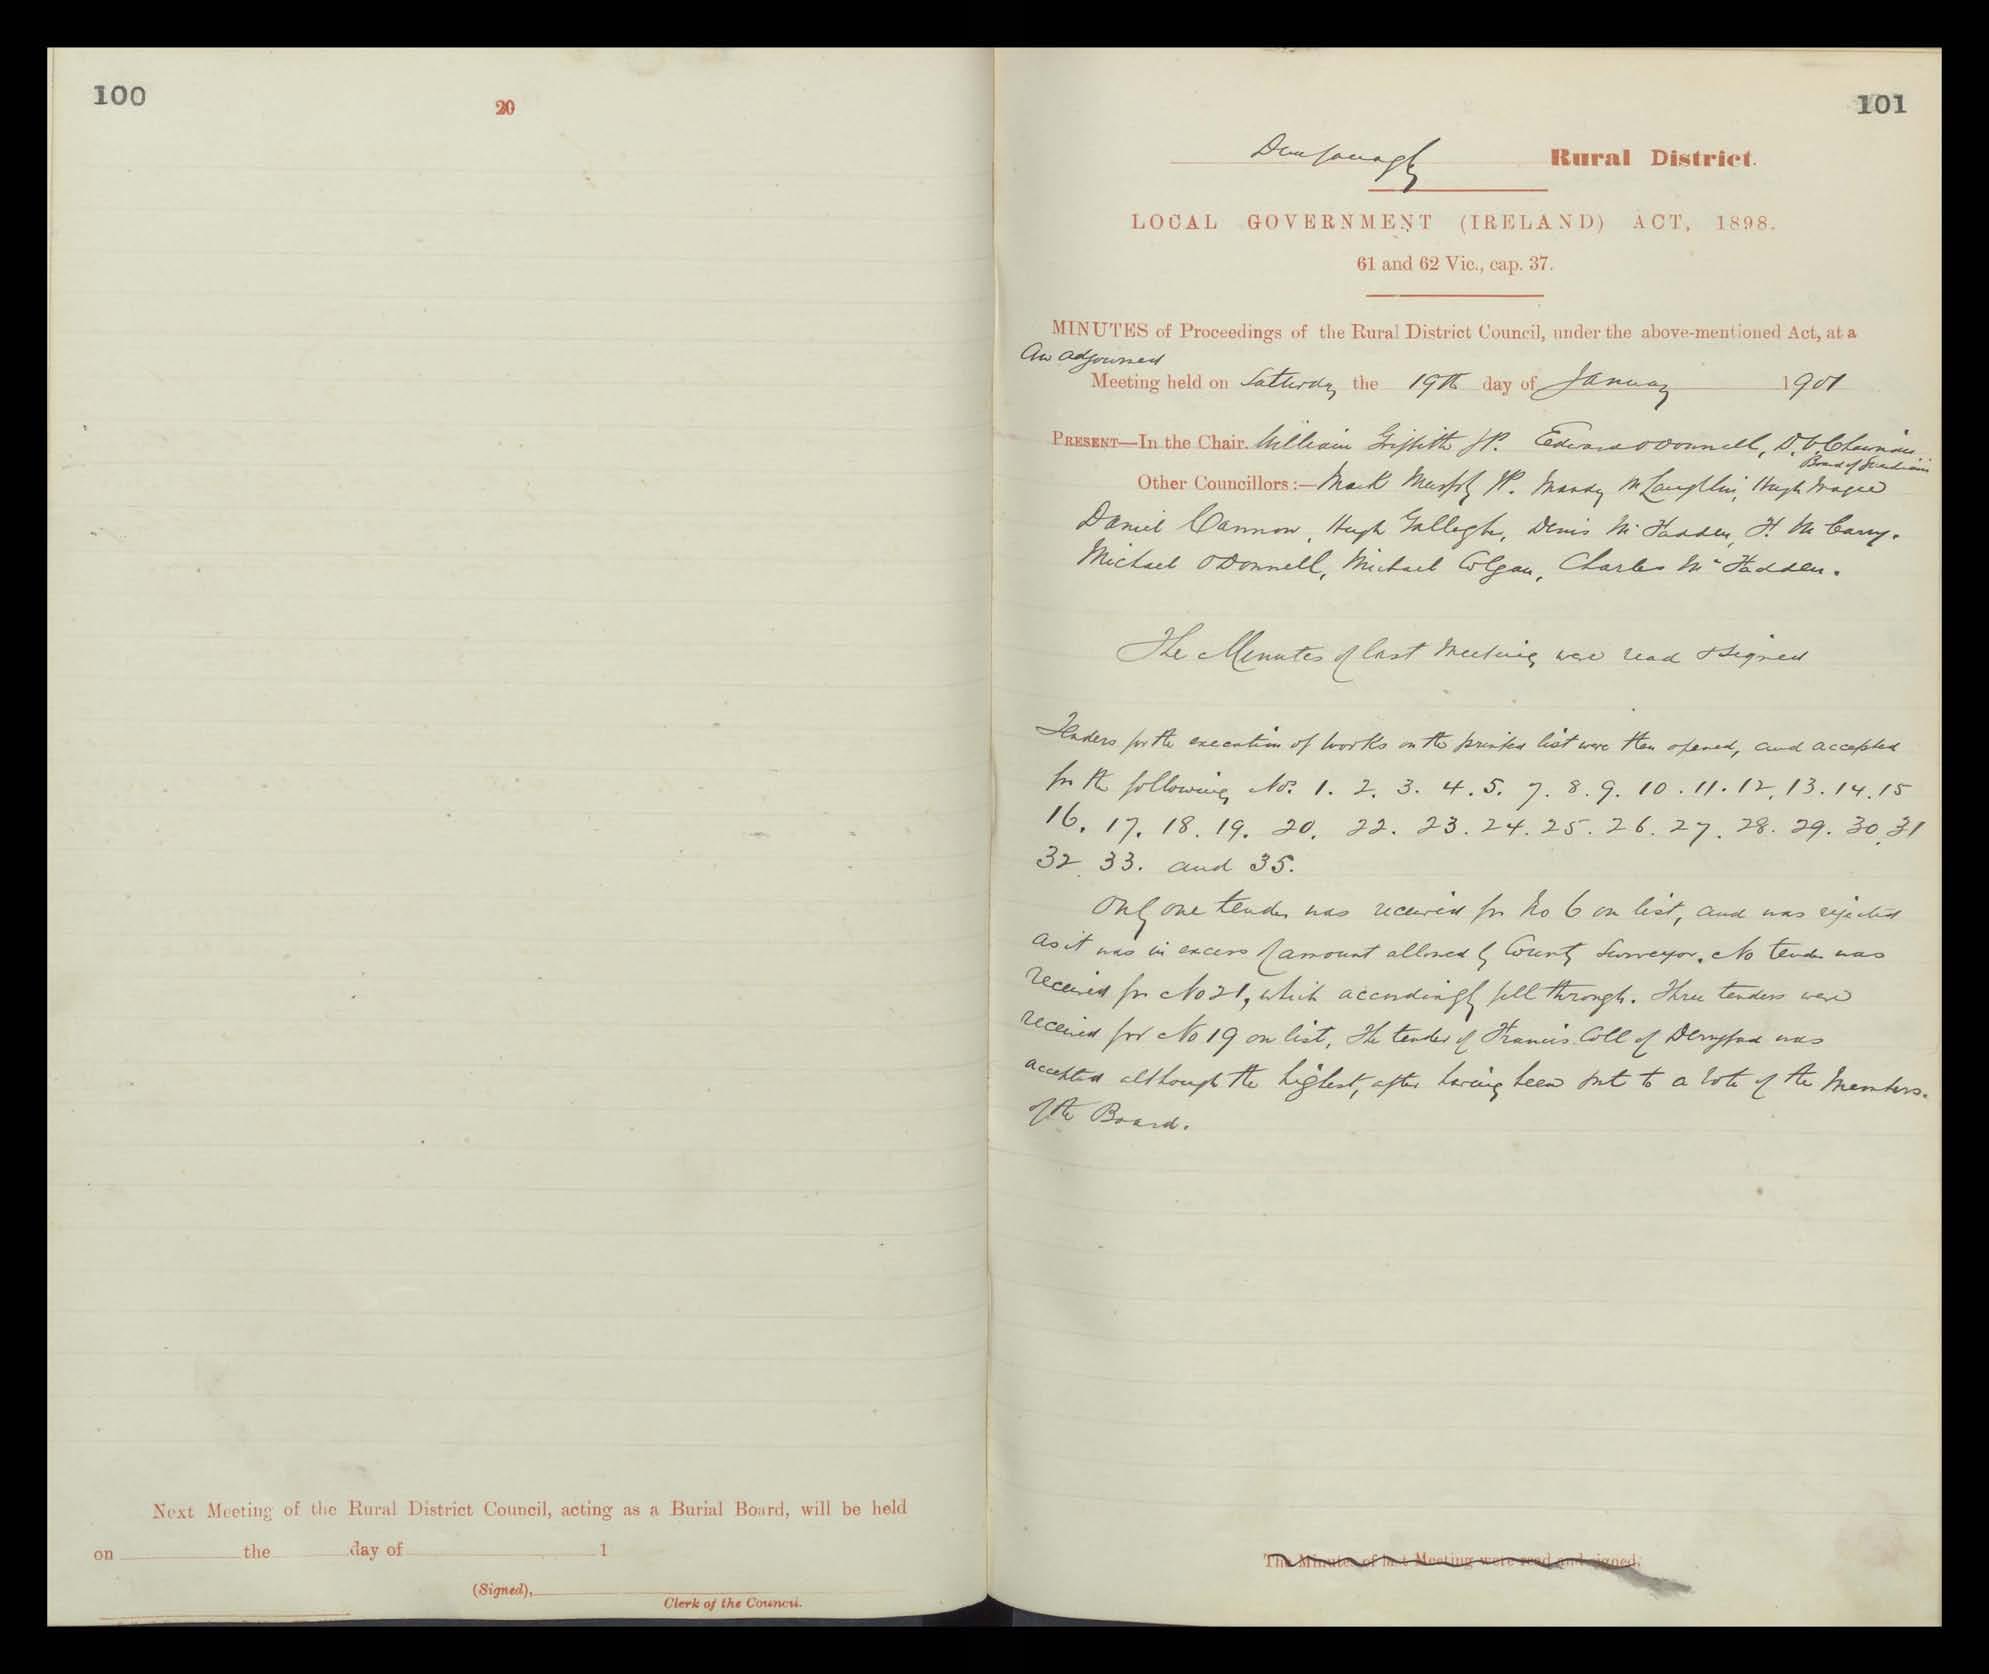 100
20
Next Meeting of the Rural District Council, acting as a Burial Board, will be held
on the day of 1
(Signed),
Clerk of the Council.
101
Dunfanaghy Rural District.
LOCAL GOVERNMENT (IRELAND) ACT, 1898.
61 and 62 Vic., cap. 37.
MINUTES of Proceedings of the Rural District Council, under the above-mentioned Act, at a
An adjourned
Meeting held on Saturday the 19th day of January 1901
PRESENT—In the Chair. William Griffith JP. Edward O'Donnell, D. V. Chairman
Board of Guardians
Other Councillors:— Mark Murphy JP. Mandy McLaughlin, Hugh Magee
Daniel Cannon, Hugh Gallagher, Denis McFadden, F. McCarry.
Michael O'Donnell, Michael Colgan, Charles McFadden.
The Minutes of last Meeting were read & signed
Tenders for the execution of works on the printed list were then opened, and accepted
for the following Nos. 1. 2. 3. 4. 5. 7. 8. 9. 10. 11. 12. 13. 14. 15
16. 17. 18. 19. 20. 22. 23. 24. 25. 26. 27. 28. 29. 30. 31
32. 33. and 35.
Only one tender was received for No 6 on list, and was rejected
as it was in excess of amount allowed by County Surveyor. No tender was
received for No 21, which accordingly fell through. Three tenders were
received for No 19 on list, The tender of Francis Coll of Derryfad was
accepted although the highest, after having been put to a vote of the Members.
of the Board.
The Minutes of last Meeting were read and signed.